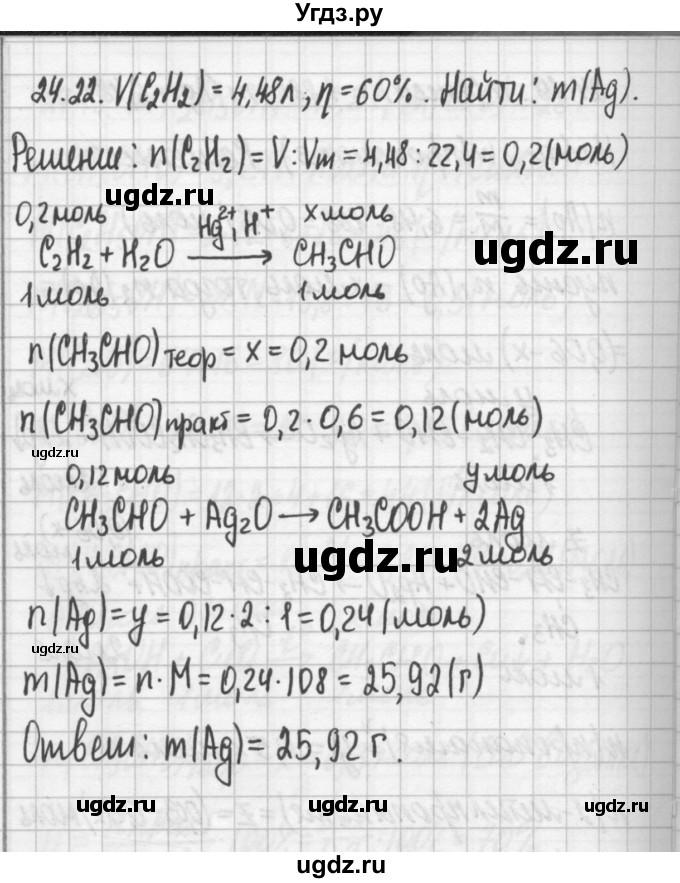 Угдз.ру
24.22. V(C₂H₂) = 4,48л; η = 60%. Найти: m(Ag).
Решение: n(C₂H₂) = V : Vm = 4,48 : 22,4 = 0,2 (моль)
ugdz.ru
0,2 моль Hg²⁺, H⁺ x моль
C₂H₂ + H₂O → CH₃CHO
ugdz.ru
1 моль 1 моль
n(CH₃CHO)теор = x = 0,2 моль
ugdz.ru
n(CH₃CHO)практ = 0,2 · 0,6 = 0,12 (моль)
ugdz.ru
0,12 моль y моль
CH₃CHO + Ag₂O → CH₃COOH + 2Ag
ugdz.ru ugdz.ru
1 моль 2 моль
n(Ag) = y = 0,12 · 2 : 1 = 0,24 (моль)
ugdz.ru
m(Ag) = n · M = 0,24 · 108 = 25,92 (г)
Ответ: m(Ag) = 25,92 г.
ugdz.ru ugdz.ru ugdz.ru
ugdz.ru